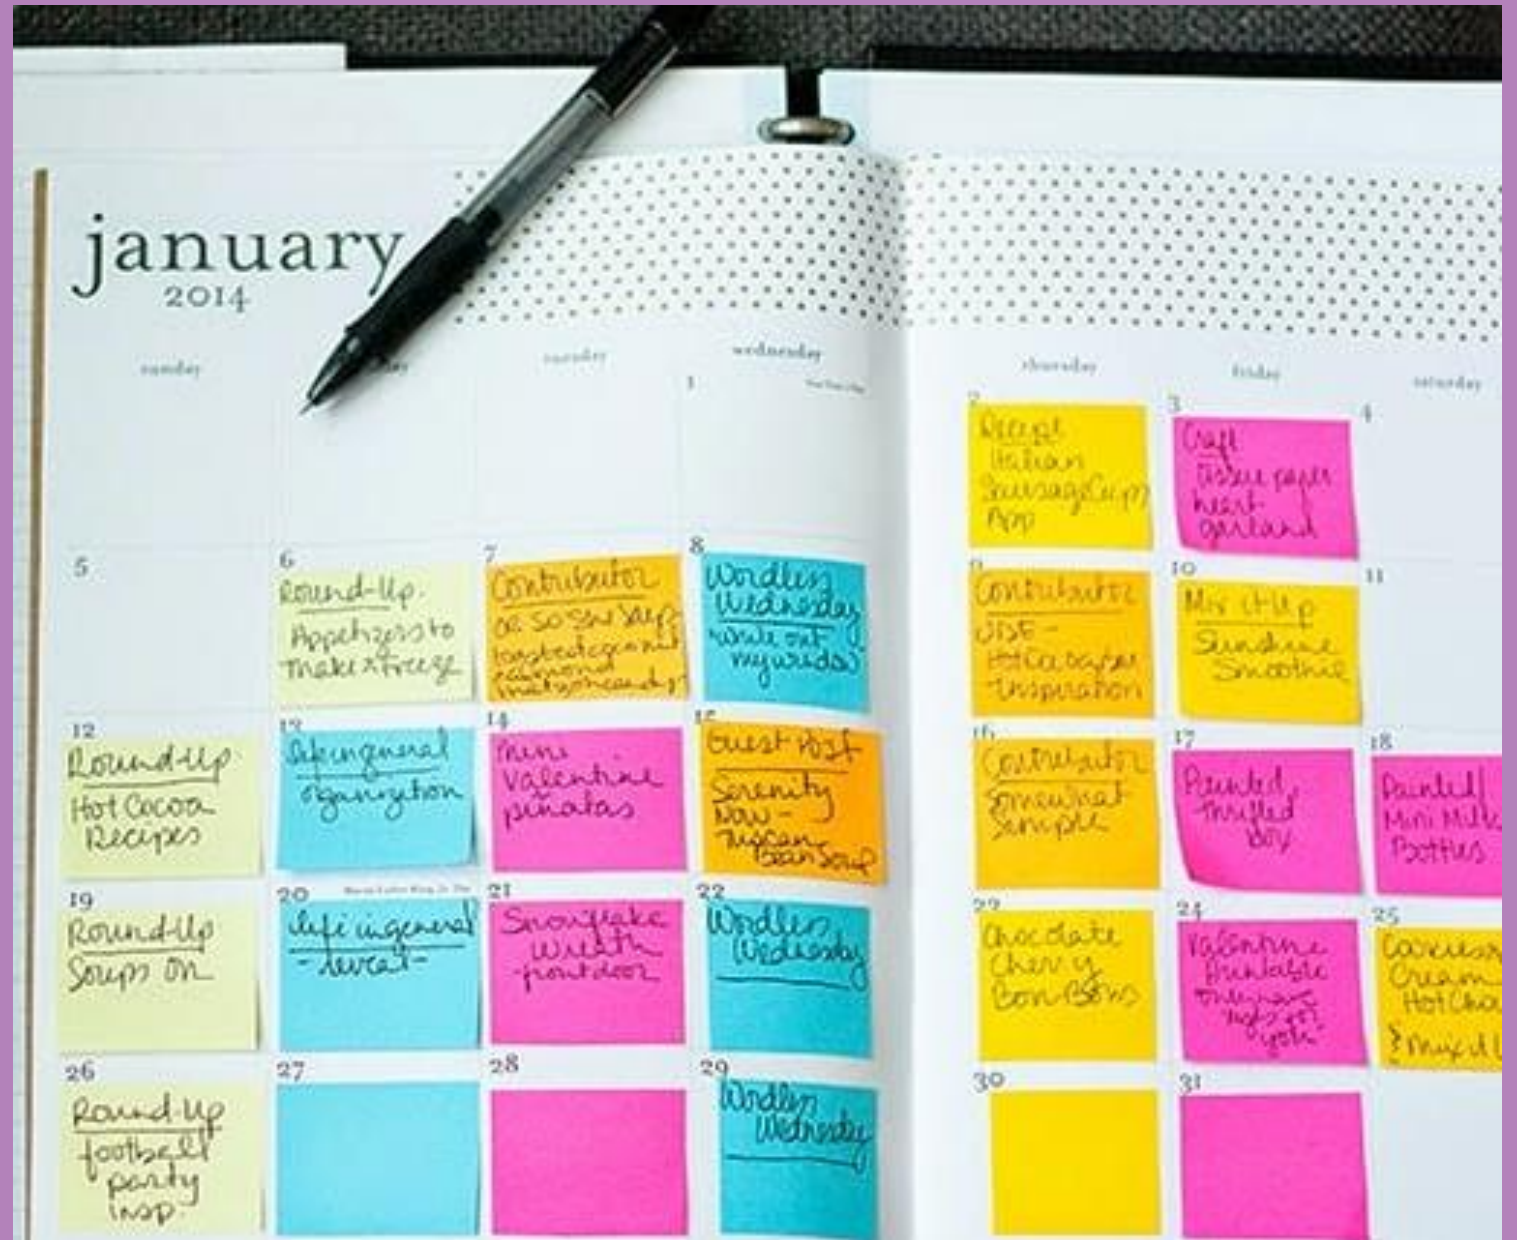 january
2014
sunday
tuesday
wednesday
thursday
friday
saturday
1
2
Recipe
Italian
Sausage Cups
App
3
Craft
tissue paper
heart
garland
4
5
6
Round-Up
Appetizers to
make + freeze
7
Contributor
or so she says
8
Wordless
Wednesday
write out
my words
9
Contributor
Inspiration
10
Mix it Up
Sunshine
Smoothie
11
12
Round-Up
Hot Cocoa
Recipes
13
life in general
organization
14
mini
Valentine
piñatas
15
Guest Post
Serenity
Now -
Tuscan
Bean Soup
16
Contributor
Somewhat
Simple
17
Painted
thrifted
box
18
Painted
Mini Milk
Bottles
19
Round-Up
Soups On
20
Martin Luther King, Jr. Day
life in general
21
Snowflake
Wreath
-front door
22
Wordless
Wednesday
23
Chocolate
Cherry
Bon Bons
24
Valentine
Printable
25
Cream
26
Round-Up
football
party
insp.
27
28
29
Wordless
Wednesday
30
31